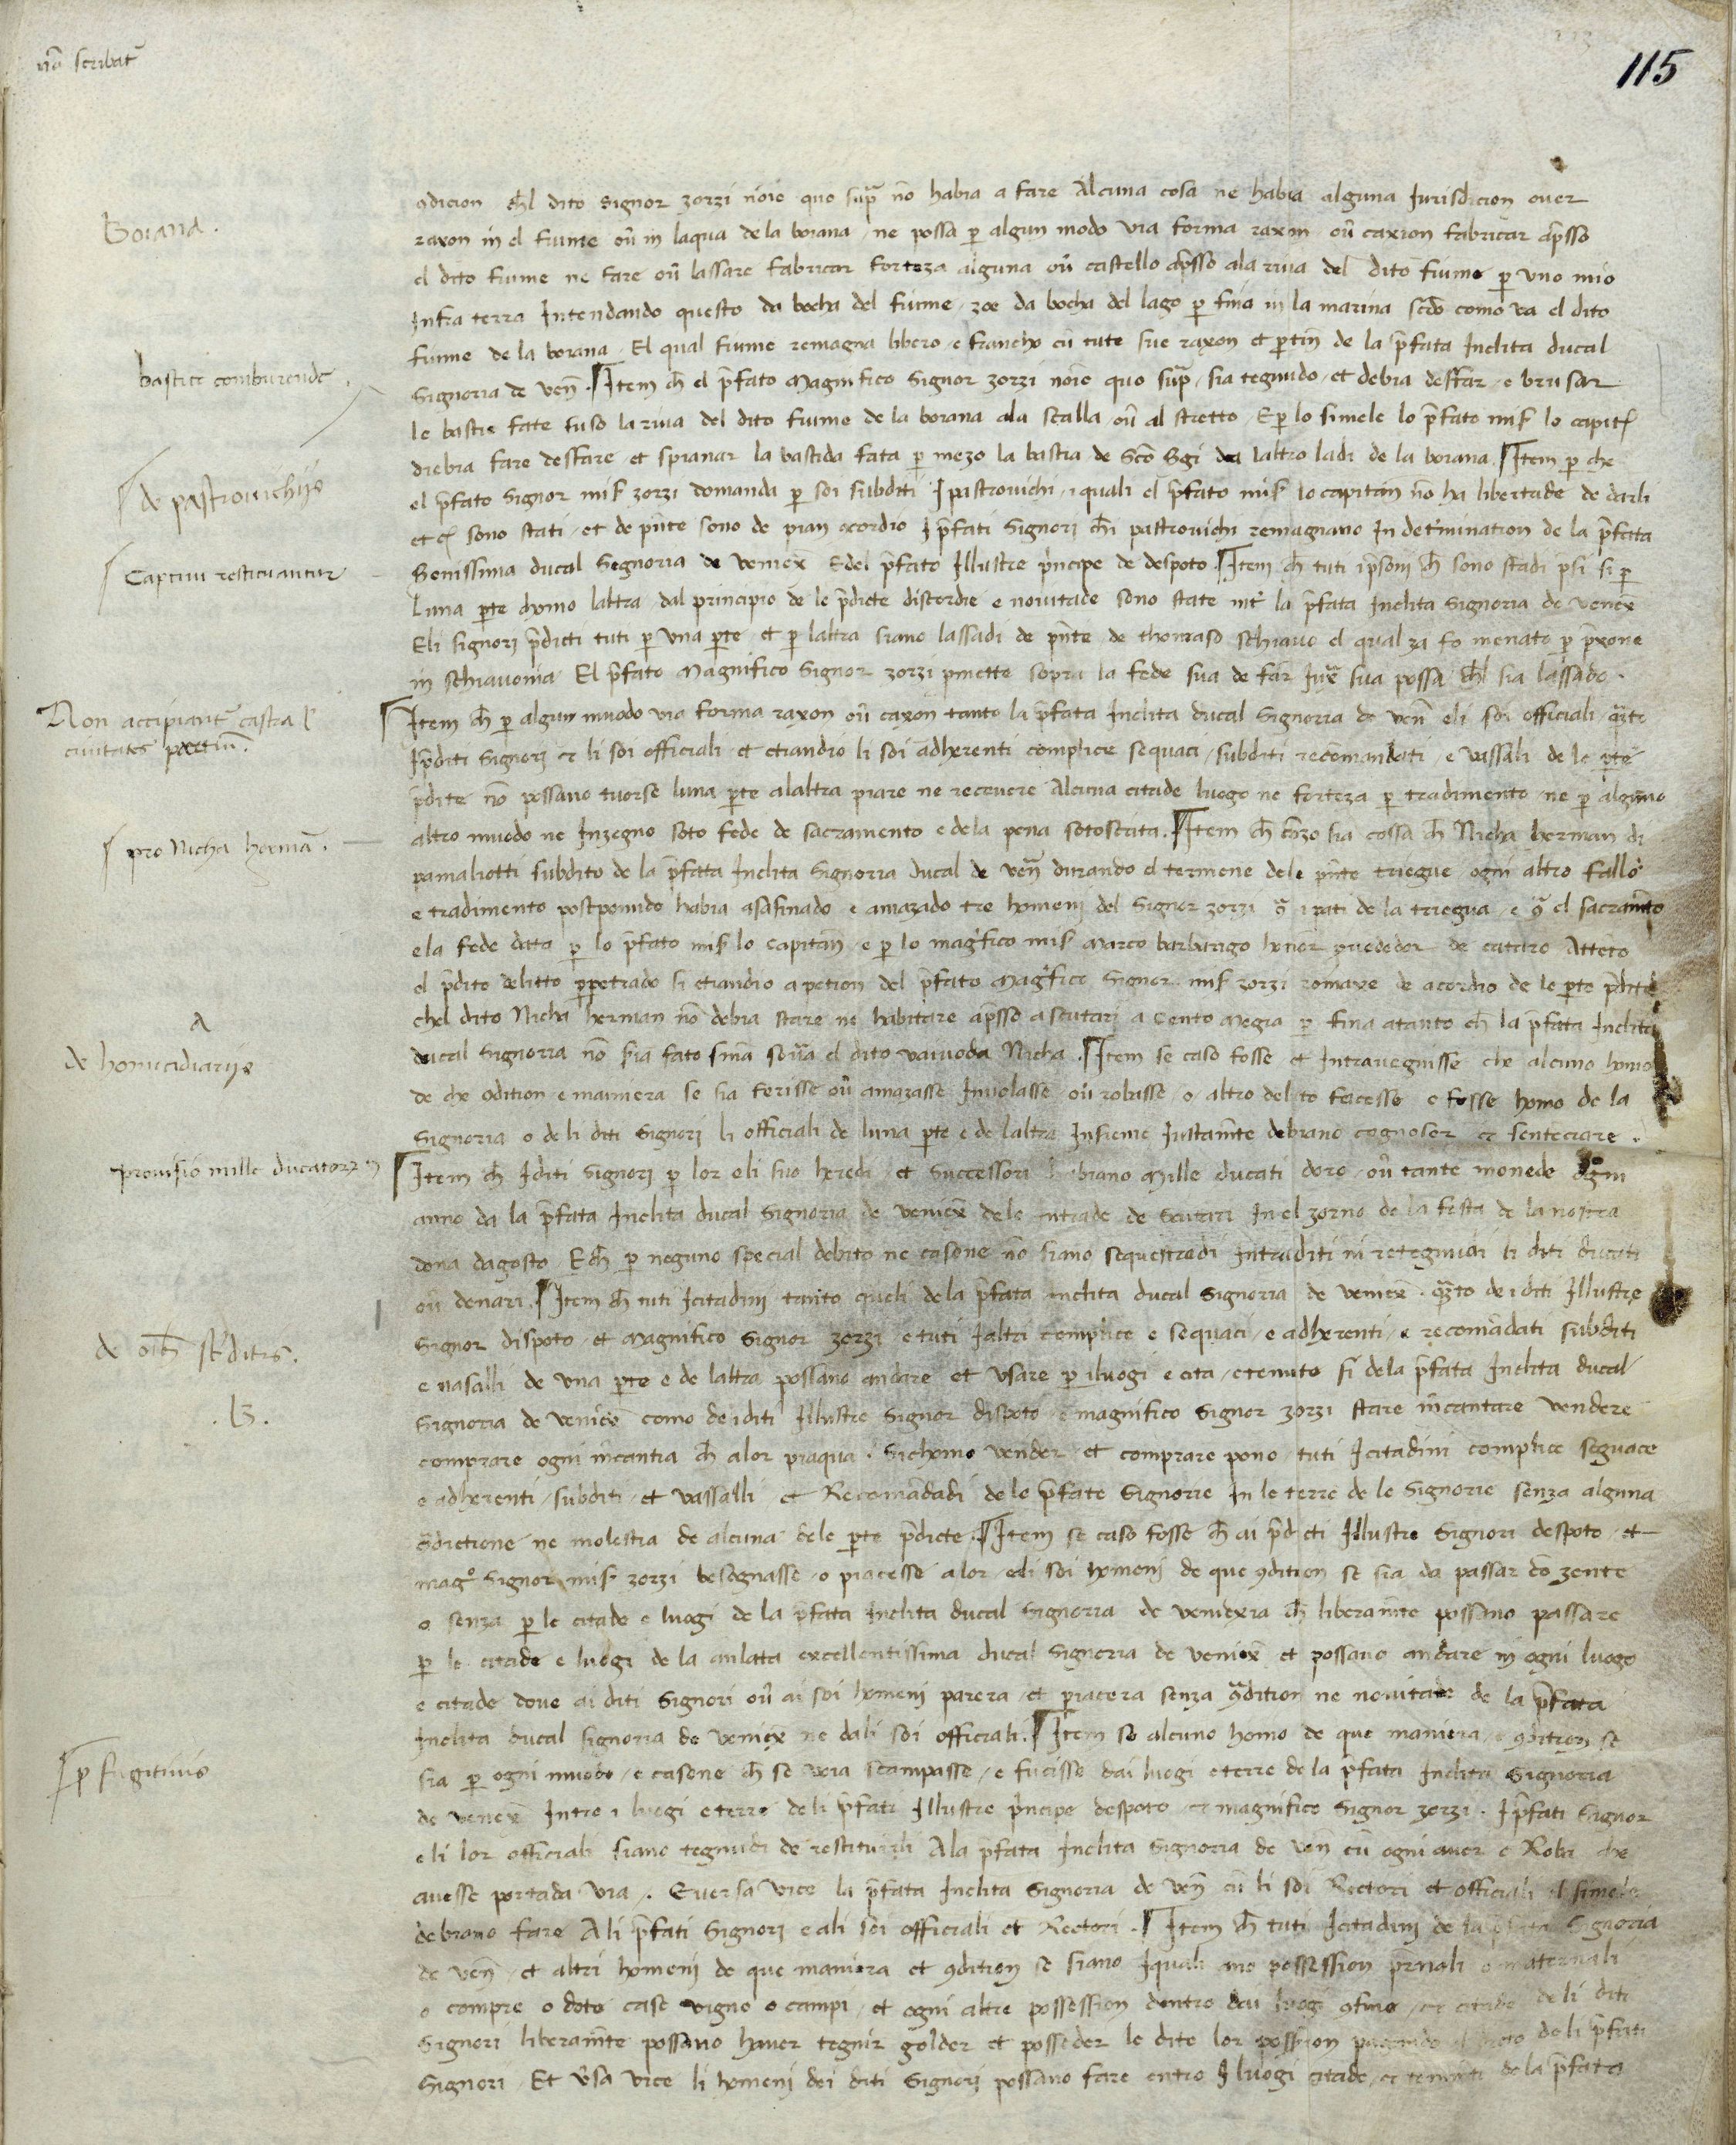 nō scribat̄
115
Boiana.
ꝯdicion ch̄l dito Signor zorzi noīe quo sup̄ nō habia a fare Alcuna cosa ne habia alguna Jurisdicion ouer
raxon in el fiume oū in laqua de la boiana / ne possa ꝑ algun modo via forma raxon oū caxion fabricar ap̄sso
el dito fiume ne fare oū lassare fabricar forteza alguna oū castello ap̄sso ala riua del dito fiume ꝑ vno mio
Infra terra Intendando questo da bocha del fiume / zoe da bocha del lago ꝑ fina in la marina scd̄o como va el dito
fiume de la boiana / El qual fiume remagna libero e francho cū tute sue raxon et ꝑtin̄ de la p̄fata Inclita ducal
bastite comburende.
Signoria de ven̄. Item ch̄ el p̄fato Magnifico Signor zorzi noīe quo sup̄ / sia tegnudo / et debia desfar e brusar
le bastie fate suso la riua del dito fiume de la boiana ala scalla oū al stretto / E ꝑ lo simele lo p̄fato mis̄ lo capit̄
diebia fare desfare et spianar la bastida fata ꝑ mezo la bastia de Scō Sgi da laltro ladi de la boiana. Item ꝑ che
de pastrouichijs
el p̄fato Signor mis̄ zorzi domanda ꝑ soi subditi I pastrouichi / i quali el p̄fato mis̄ lo capitan nō ha libertade de darli
et sono stati / et de pn̄te sono de pian acordio I p̄fati Signori ch̄ i pastrouichi remagnano In det̄mination de la p̄fata
Captiui restituantur
Serenissima ducal Segnoria de veniex̄ E del p̄fato Illustre p̄ncipe de despoto. Item ch̄ tuti i p̄soni ch̄ sono stadi p̄si si ꝑ
Luna ꝑte chomo laltra / dal principio de le p̄dicte discordie e nouitade sono state int̄ la p̄fata Inclita Signoria de veniex̄
E li signori p̄dicti tuti ꝑ vna ꝑte et ꝑ laltra siano lassadi de pn̄te / de thomaso schiauo el qual za fo menato ꝑ p̄xone
in schiauonia El p̄fato Magnifico Signor zorzi ꝓmette sopra la fede sua de far Iux̄ sua possa ch̄l sia lassado.
Non accipiant̄ castra l̄ ciuitates partiū.
Item ch̄ ꝑ algun muodo via forma raxon oū caxon tanto la p̄fata Inclita ducal Signoria de ven̄ e li soi officiali / q̄nto
I p̄diti Signori et li soi officiali / et etiandio li soi adherenti complice sequaci / subditi recomandati / e vassali de le ꝑte
p̄dite nō possano tuorse luna ꝑte alaltra piare ne receuere Alcuna citade luogo ne forteza ꝑ tradimento ne ꝑ alguno
altro muodo ne Inzegno soto fede de sacramento e dela pena sotoscrita. Item ch̄ chīzo sia cossa ch̄ Nicha herman di
pro Nicha hermā.
pamaliotti subdito de la p̄fata Inclita Signoria ducal de ven̄ durando el termene dele pn̄te triegue ogni altro fallo
e tradimento postponudo habia asasinado e amazado tre homeni del Signor zorzi ꝯ̄ i pati de la triegua / e ꝯ̄ el sacram̄to
e la fede data ꝑ lo p̄fato mis̄ lo Capitan̄ e ꝑ lo mag̓fico mis̄ Marco barbarigo honor̄ ꝓuededor de cataro Atteto
el p̄dito delitto ꝑpetrado si etiandio a petion del p̄fato Mag̓fico Signor mis̄ zorzi romaxe de acordio de le ꝑte p̄dite
chel dito Nicha herman nō debia stare ne habitare ap̄sso a scutari a Cento Megia ꝑ fina a tanto ch̄ la p̄fata Inclita
a
de homicidiarijs
ducal Signoria nō sia fato sn̄ia soura el dito vaiuoda Nicha. Item se caso fosse et Intrauegnisse che alcuno homo
de che ꝯdition e mainiera se sia ferisse oū amazasse Inuolasse oū robasse o altro delito fecesse e fosse homo de la
Signoria o de li diti Signori li officiali de luna ꝑte e de laltra Insieme Iustam̄te debiano cognoser et sentēciare.
prouisio mille ducatorꝝ
Item ch̄ I diti Signori ꝑ lor e li suo heredi / et Successori habiano Mille ducati doro oū tante monede ogni
anno da la p̄fata Inclita ducal Signoria de veniex̄ dele intrade de Scutari In el zorno de la festa de la nostra
dona dagosto E ch̄ ꝑ neguno special debito ne casone nō siano sequestradi intraditi ni retegnudi li diti ducati
oū denari. Item ch̄ tuti I citadini tanto queli de la p̄fata inclita ducal Signoria de veniex̄ q̄nto de i diti Illustre
de oīb̄ s̄bditis.
.b.
Signor dispoto et Magnifico Signor zorzi e tuti I altri complice e sequaci e adherenti e recomādati subditi
e uasalli de una ꝑte e de laltra possano andare et usare ꝑ i luogi e cita / e tenute si de la p̄fata Inclita ducal
Signoria de veniex̄ como de i diti Illustre Signor dispoto e magnifico Signor zorzi stare m̄cantare vendere
comprare ogni mcantia ch̄ a lor piaqua. Sichomo vender et comprare pono tuti I citadini complice seguace
e adherenti / subditi et vassalli et Recomādadi de le p̄fate Signorie In le terre de le Signorie senza alguna
ꝯ̄dictione ne molestia de alcuna dele ꝑte p̄dicte. Item se caso fosse ch̄ ai p̄dicti Illustre Signori despoto et
mag.o Signor mis̄ zorzi besognasse o piacesse a lor e di soi homeni de que ꝯdition se sia da passar cō zente
o senza ꝑ le citade e luogi de la p̄fata inclita ducal Signoria de veniexia ch̄ liberam̄te possano passare
ꝑ le citade e luogi de la anlata excellentissima ducal Signoria de veniex̄ et possano andare in ogni luogo
e citade doue ai diti Signori oū ai soi homeni parera et piacera senza ꝯ̄dition ne nouitade de la p̄fata
Inclita ducal signoria de veniex̄ ne dali soi officiali. Item se alcuno homo de que maniera e ꝯdition se
ꝑ fugitiuis
sia ꝑ ogni muodo e casone ch̄ se uoia scampasse e fucisse dai luogi e terre de la p̄fata Inclita Signoria
de veniex̄ Intro i luogi e terre de li p̄fati Illustre p̄ncipe despoto et magnifico Signor zorzi. I p̄fati Signor
e li lor officiali siano tegnudi de restituirli Ala p̄fata Inclita Signoria de ven̄ cū ogni auer e Roba che
auesse portada via. E uersa vice la p̄fata Inclita Signoria de ven̄ cū li soi Rectori et officiali el simele
debiano fare A li p̄fati Signori e ali soi officiali et Rectori. Item ch̄ tuti I citadini de la p̄fata Signoria
de ven̄ et altri homeni de que maniera et ꝯdition se siano I quali ano possession pr̄nali o maternali
o compre o dote case vigne o campi et ogni altre possession dentro dai luogi ꝯfine et citade de li diti
Signori liberam̄te possano hauer tegnir golder et posseder le dite lor possession pagando el dreto de li p̄fati
Signori / Et v̄sa vice li homeni dei diti Signori possano fare entro I luogi citade et tenute de la p̄fata